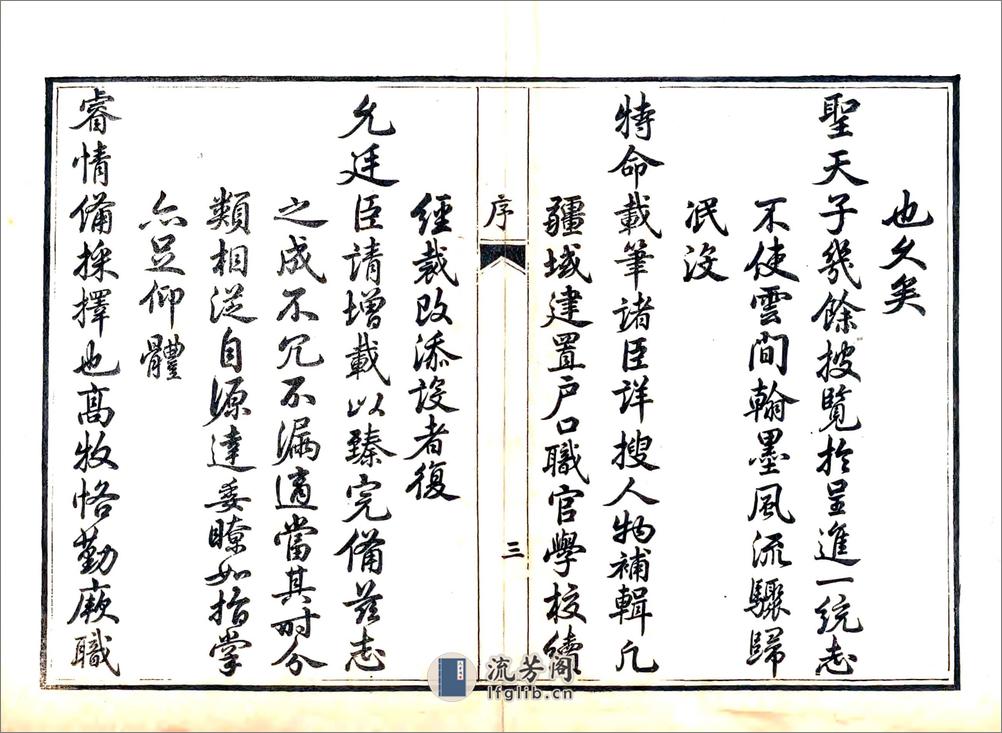 也久矣
聖天子幾餘披覽於呈進一統志
不使雲間翰墨風流驟歸
泯沒
特命載筆諸臣詳搜人物補輯凡
疆域建置戶口職官學校續
序
三
經裁改添設者復
允廷臣請增載以臻完備茲志
之成不冗不漏適當其時分
類相從自源達委瞭如指掌
亦足仰體
睿情備採擇也高牧恪勤厥職
流芳阁
lfglib.cn